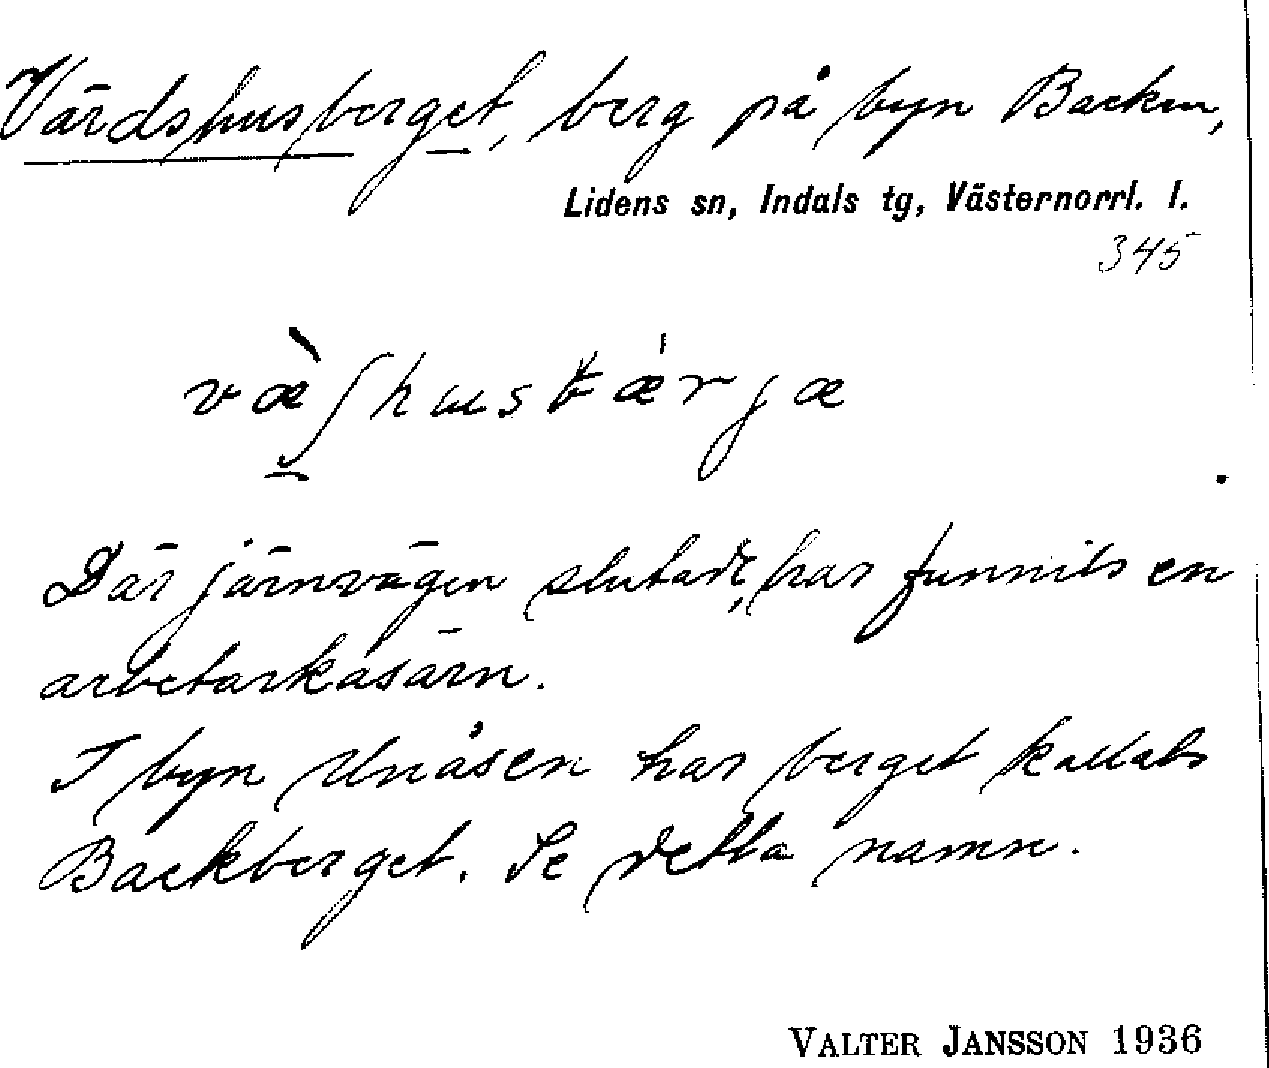 Värdshusberget, berg på byn Backen,
Lidens sn, Indals tg, Västernorrl. l.
345
Där järnvägen slutade, har funnits en
arbetarkasärn.
I byn Unåsen har berget kallats
Backberget. Se detta namn.
VALTER JANSSON 1936